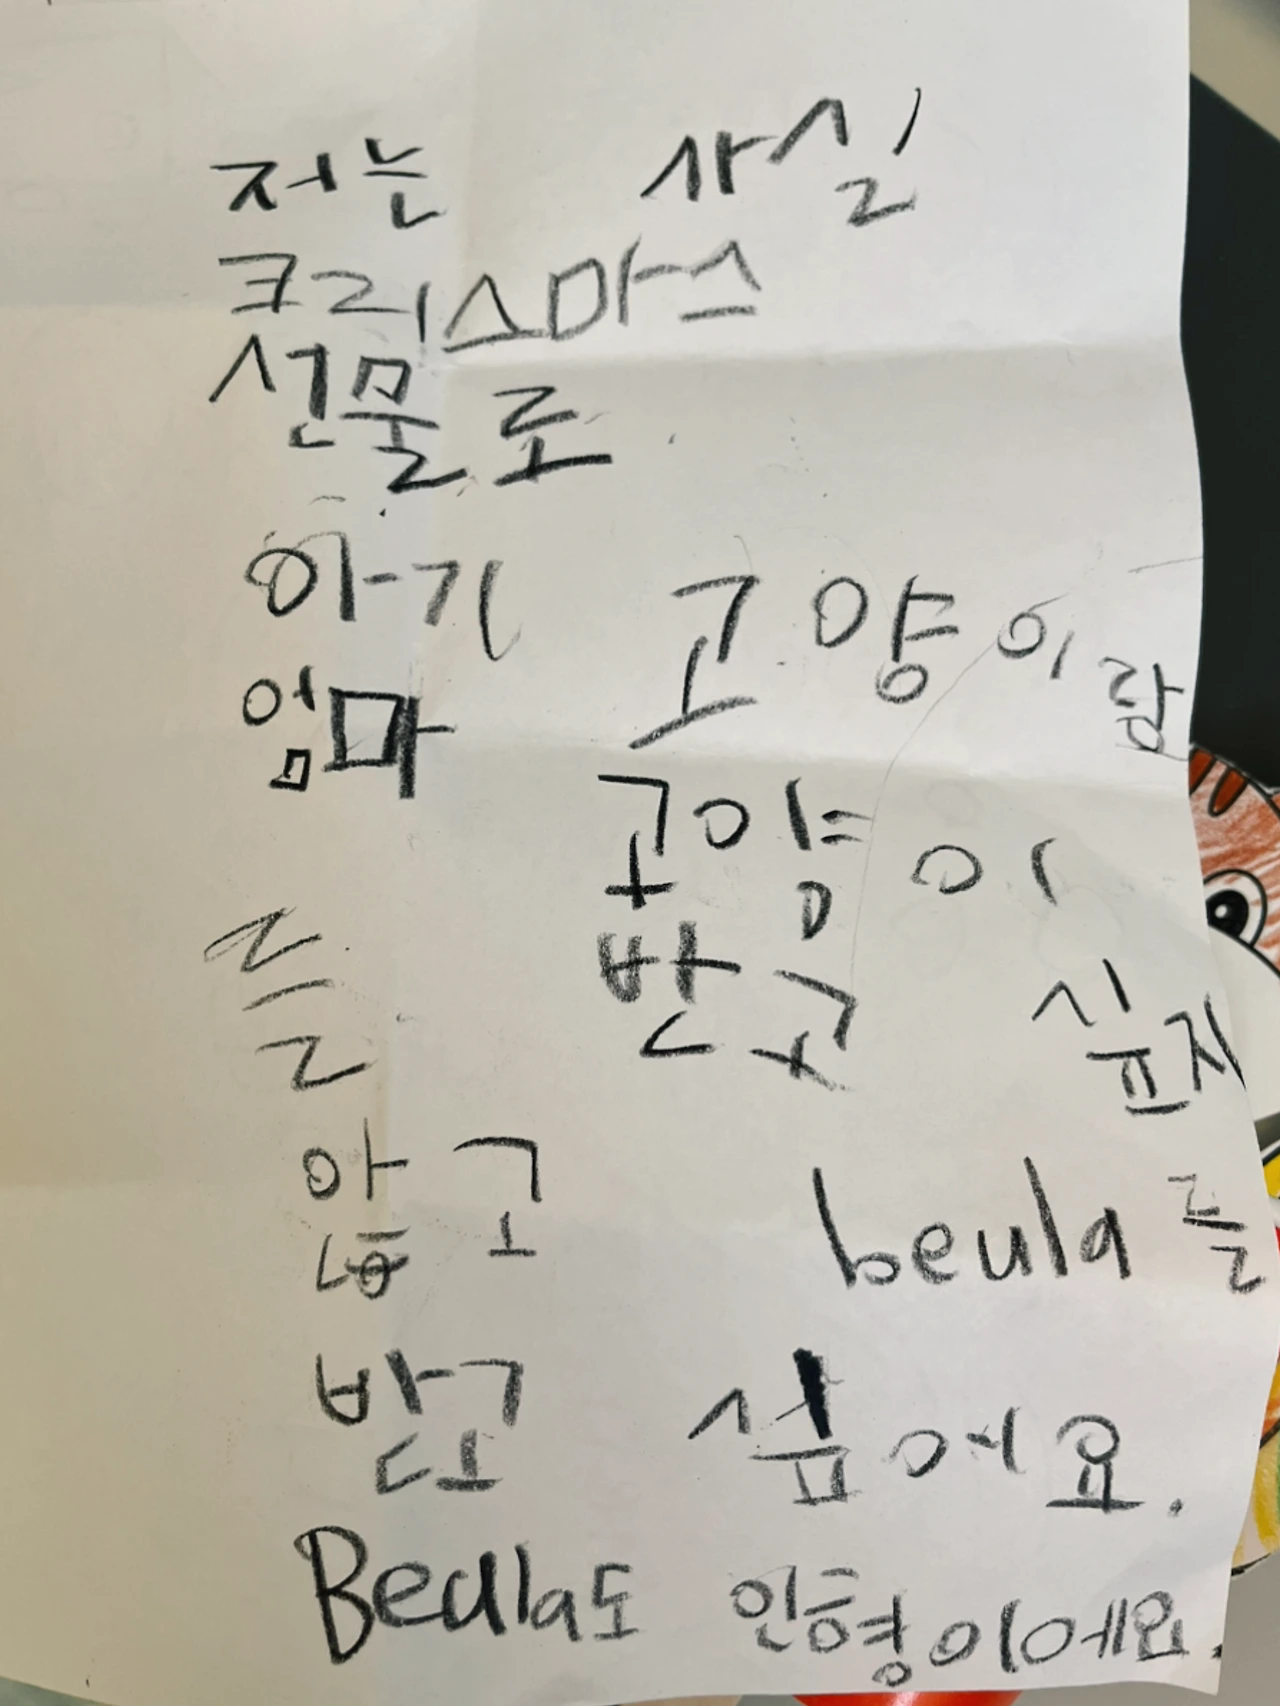 저는 사실
크리스마스
선물로
아기 고양이랑
엄마 고양이
를 받고 싶지
않고 beula를
받고 싶어요.
Beulla도 인형이에요.